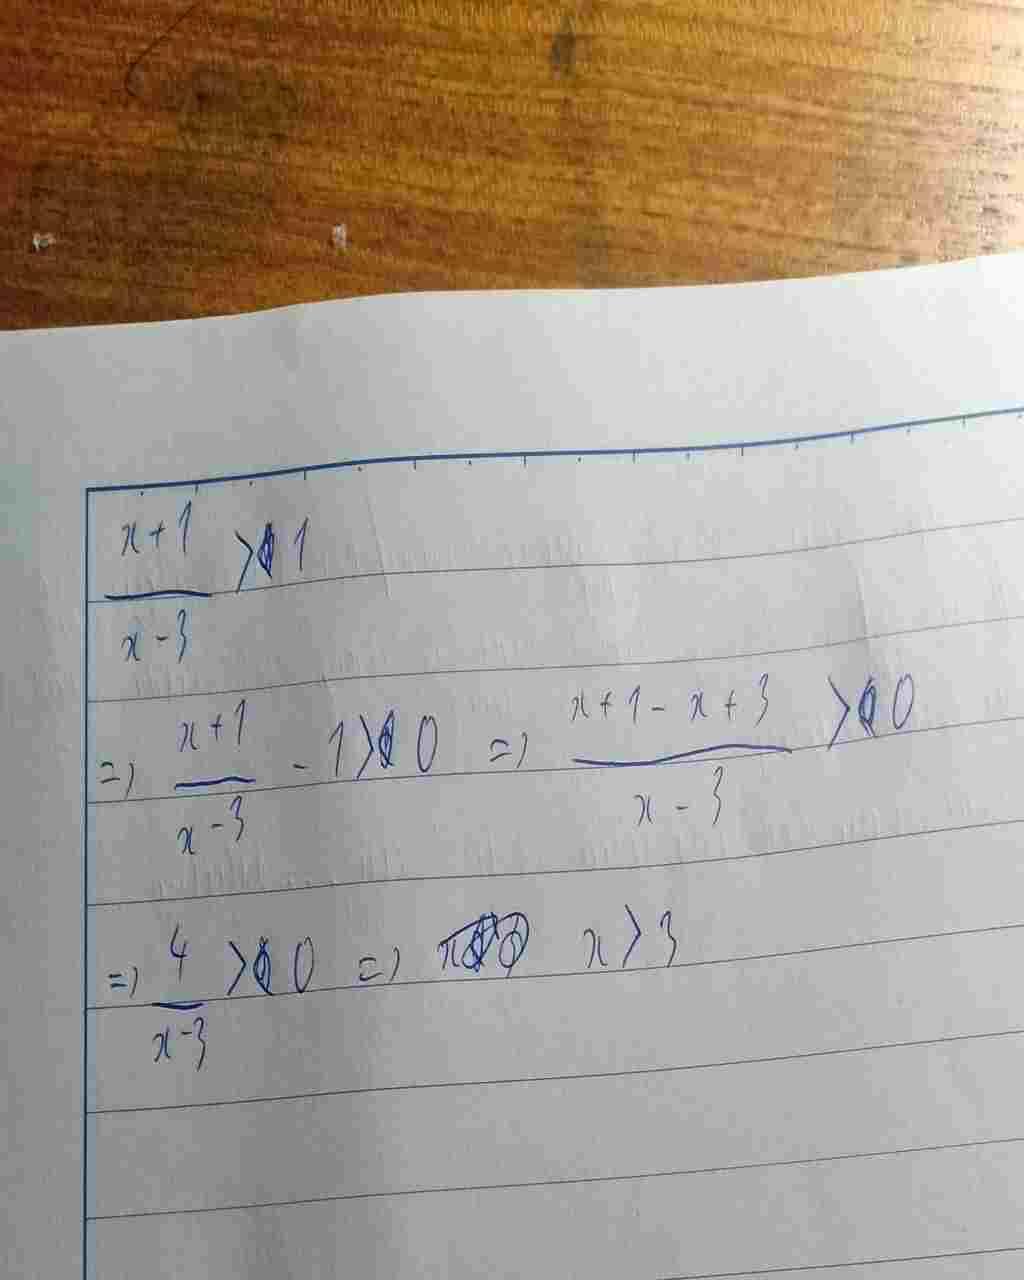 x+1/x-3 > 1
=> x+1/x-3 - 1 > 0 => x+1-x+3/x-3 > 0
=> 4/x-3 > 0 => x > 3